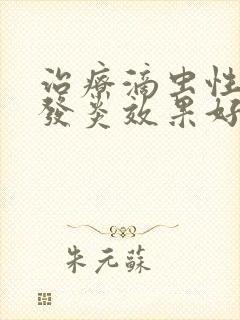 治療滴虫性
發炎效果好
朱元蘇